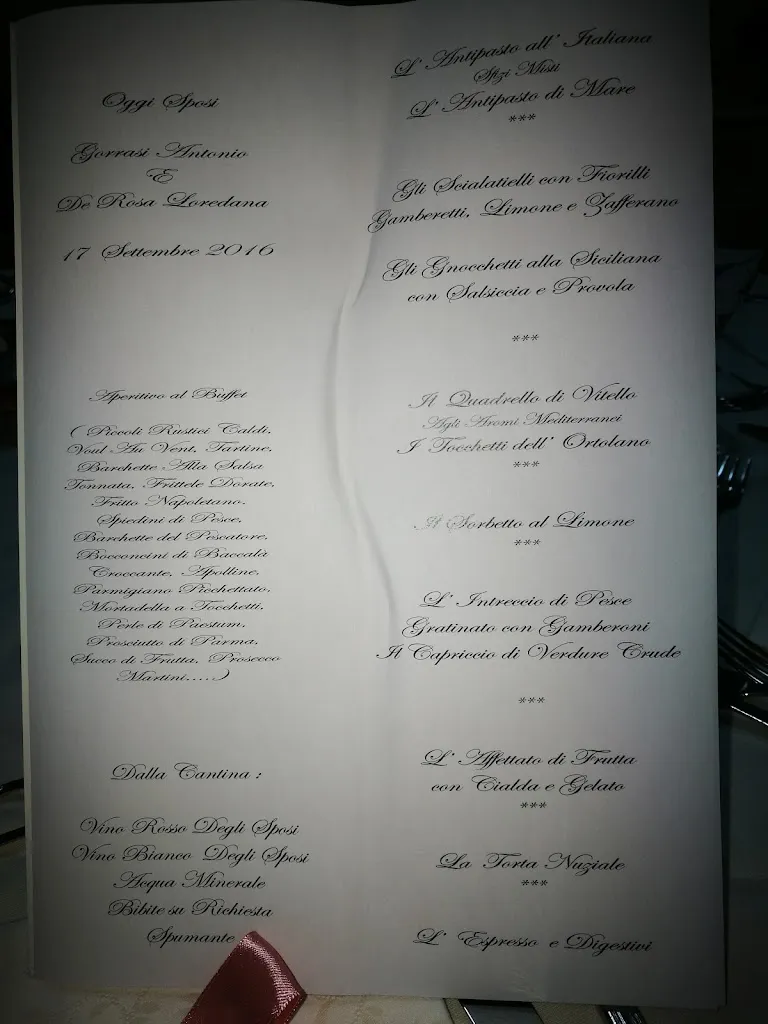 Oggi Sposi
Gorrasi Antonio
E
De Rosa Loredana
17 Settembre 2016
Aperitivo al Buffet
( Piccoli Rustici Caldi,
Voul Au Vent, Tartine,
Barchette Alla Salsa
Tonnata, Frittele Dorate,
Fritto Napoletano,
Spiedini di Pesce,
Barchette del Pescatore,
Bocconcini di Baccalà
Croccante, Apolline,
Parmigiano Picchettato,
Mortadella a Tocchetti,
Perle di Paestum,
Prosciutto di Parma,
Succo di Frutta, Prosecco
Martini.....)
Dalla Cantina :
Vino Rosso Degli Sposi
Vino Bianco Degli Sposi
Acqua Minerale
Bibite su Richiesta
Spumante
L' Antipasto all' Italiana
Sfizi Misti
L' Antipasto di Mare
***
Gli Scialatielli con Fiorilli
Gamberetti, Limone e Zafferano
Gli Gnocchetti alla Siciliana
con Salsiccia e Provola
***
Il Quadrello di Vitello
Agli Aromi Mediterranei
I Tocchetti dell' Ortolano
***
Il Sorbetto al Limone
***
L' Intreccio di Pesce
Gratinato con Gamberoni
Il Capriccio di Verdure Crude
***
L' Affettato di Frutta
con Cialda e Gelato
***
La Torta Nuziale
***
L' Espresso e Digestivi